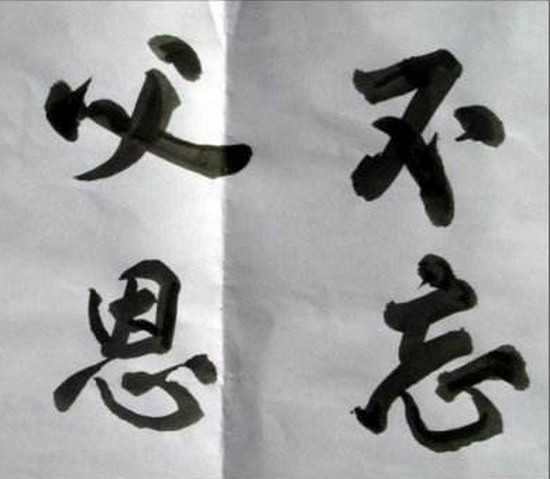 不忘
父恩